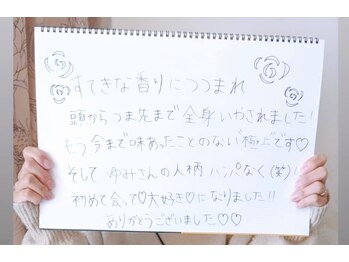 すてきな香りにつつまれ
頭からつま先まで全身いやされました!
もう今まで味あったことのない"極上"です♡
そして ゆみさんの人柄 ハンパなく(笑)!
初めて会って♡大好き♡になりました!!
ありがとうございました♡♡